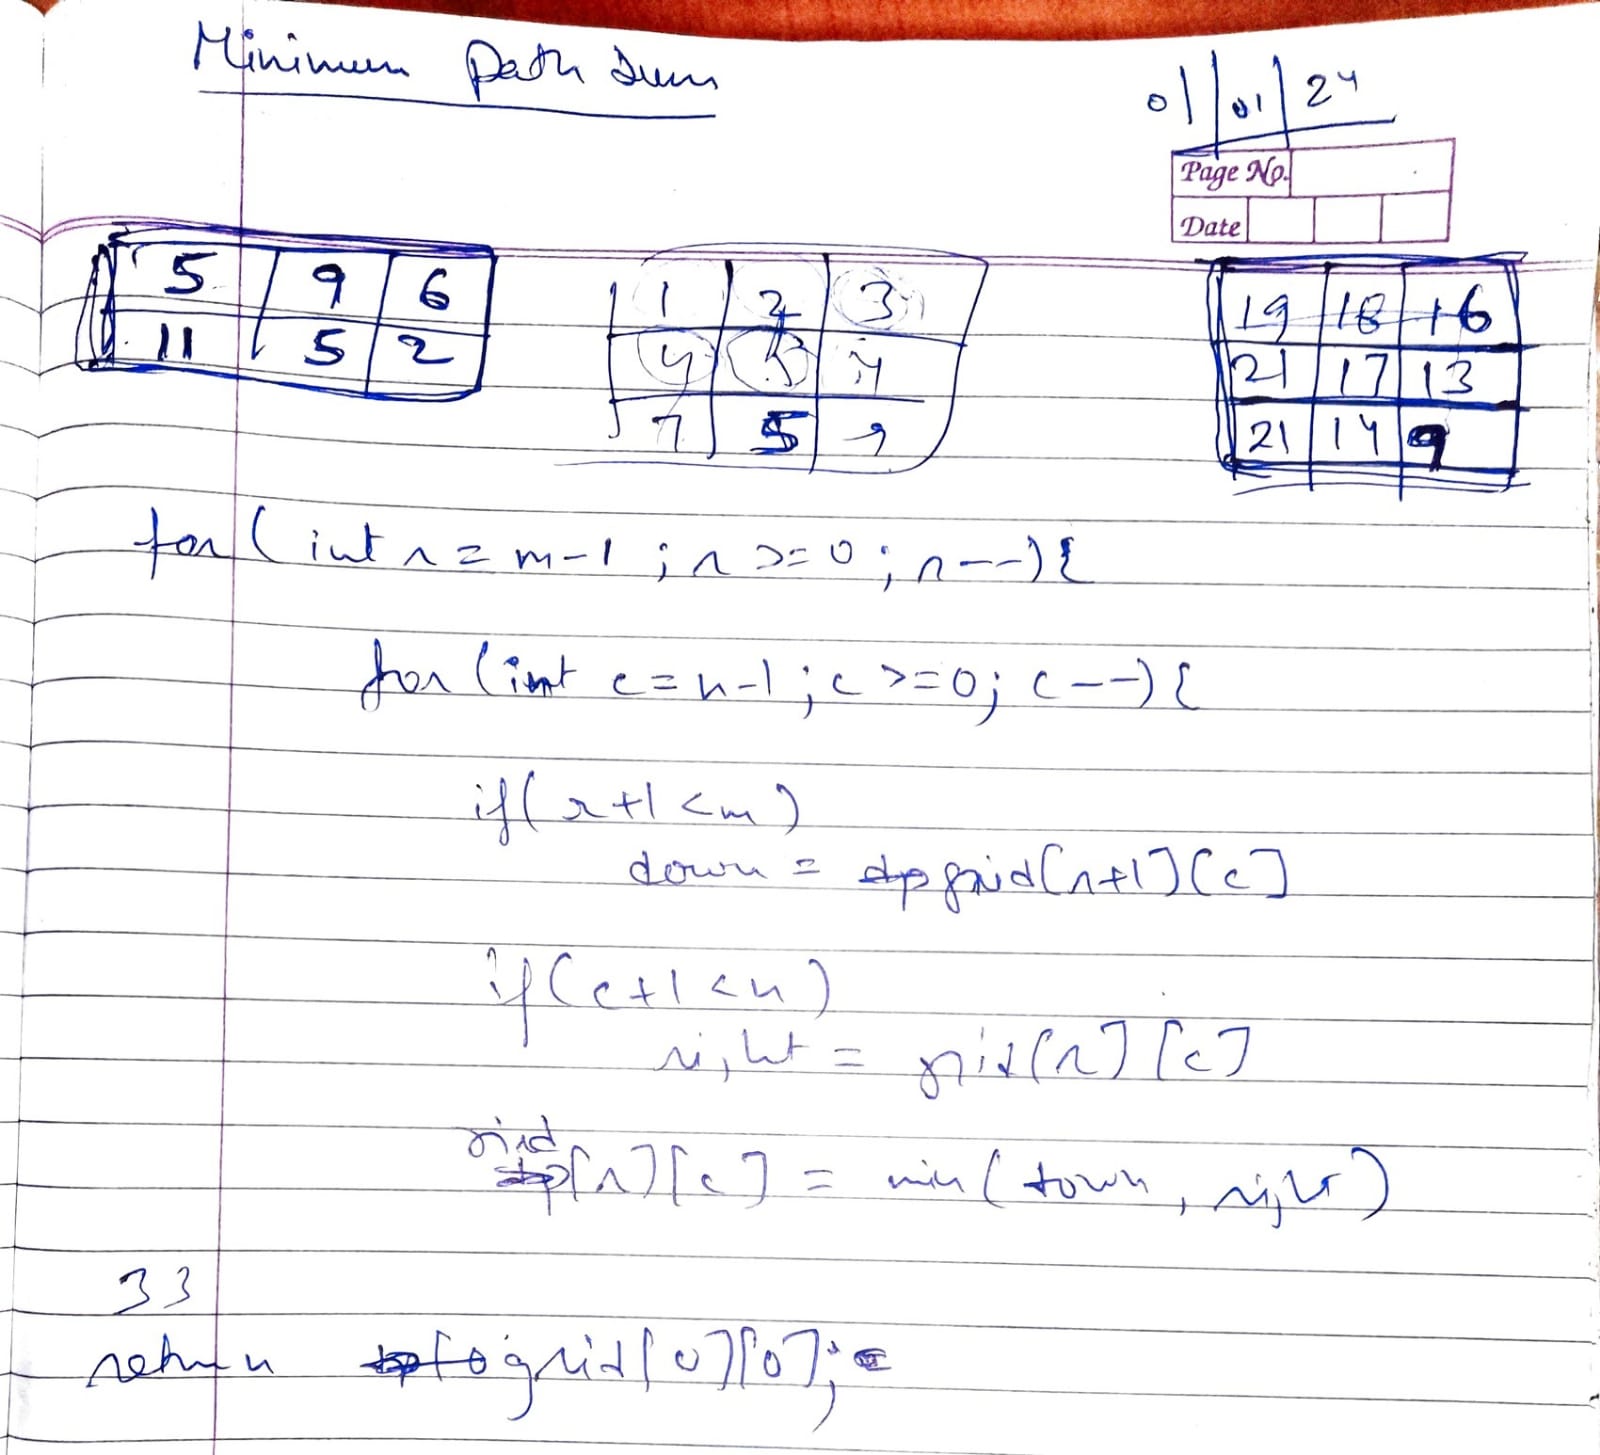 Minimum Path Sum
01/01/24
Page No.
Date
5 9 6
11 5 2
1 2 3
4 5 4
7 5 9
19 18 16
21 17 13
21 14 9
for(int r = m-1 ; r >= 0 ; r--){
for(int c = n-1 ; c >= 0 ; c--){
if(r+1 < m)
down = dp grid[r+1][c]
if(c+1 < n)
right = grid[r][c]
grid
dp[r][c] = min(down, right)
}}
return grid[0][0];